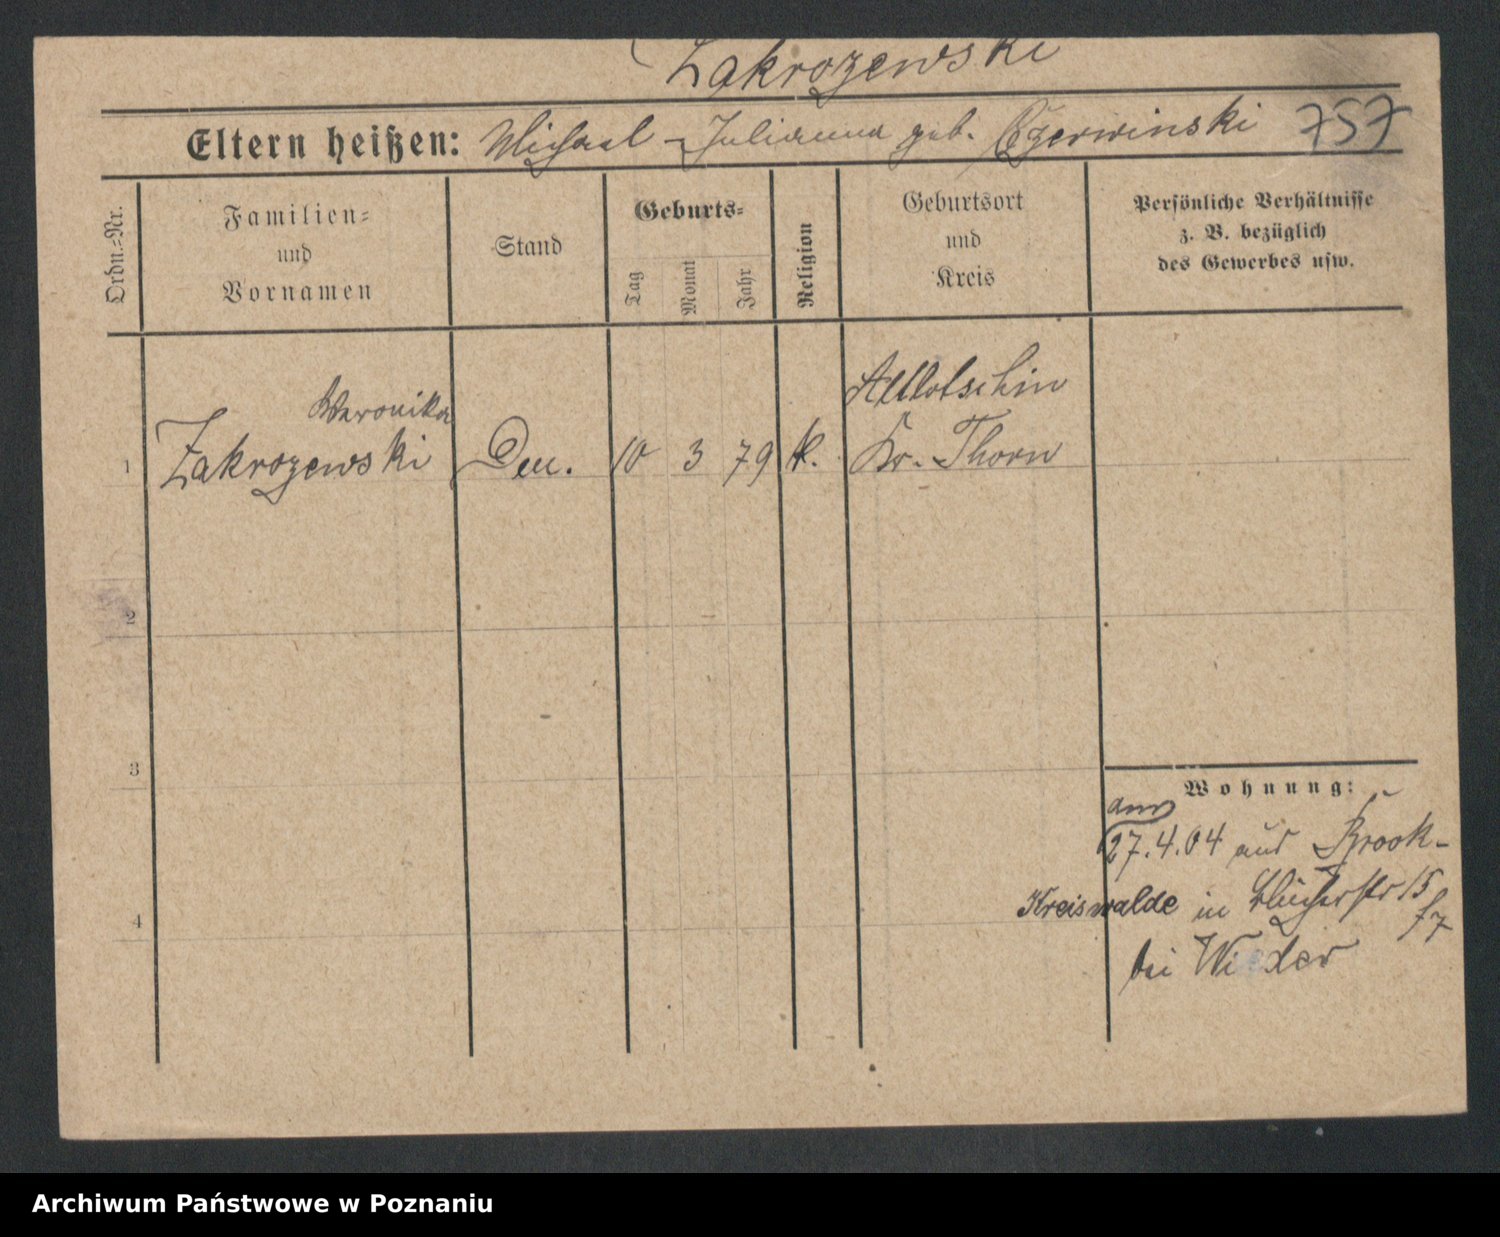 Zakrozewski
Eltern heißen: Michael – Julianna geb. Czerwinski 757
Ordn.=Nr.
Familien=
und
Vornamen
Stand
Geburts=
Tag
Monat
Jahr
Religion
Geburtsort
und
Kreis
Persönliche Verhältnisse
z. B. bezüglich
des Gewerbes usw.
Weronika
1 Zakrozewski 10 3 79 k. Kr. Thorn
2
3
Wohnung:
am
27.4.04 aus
Kreiswalde in Blücherstr 15
4
bei Wieder
Archiwum Państwowe w Poznaniu